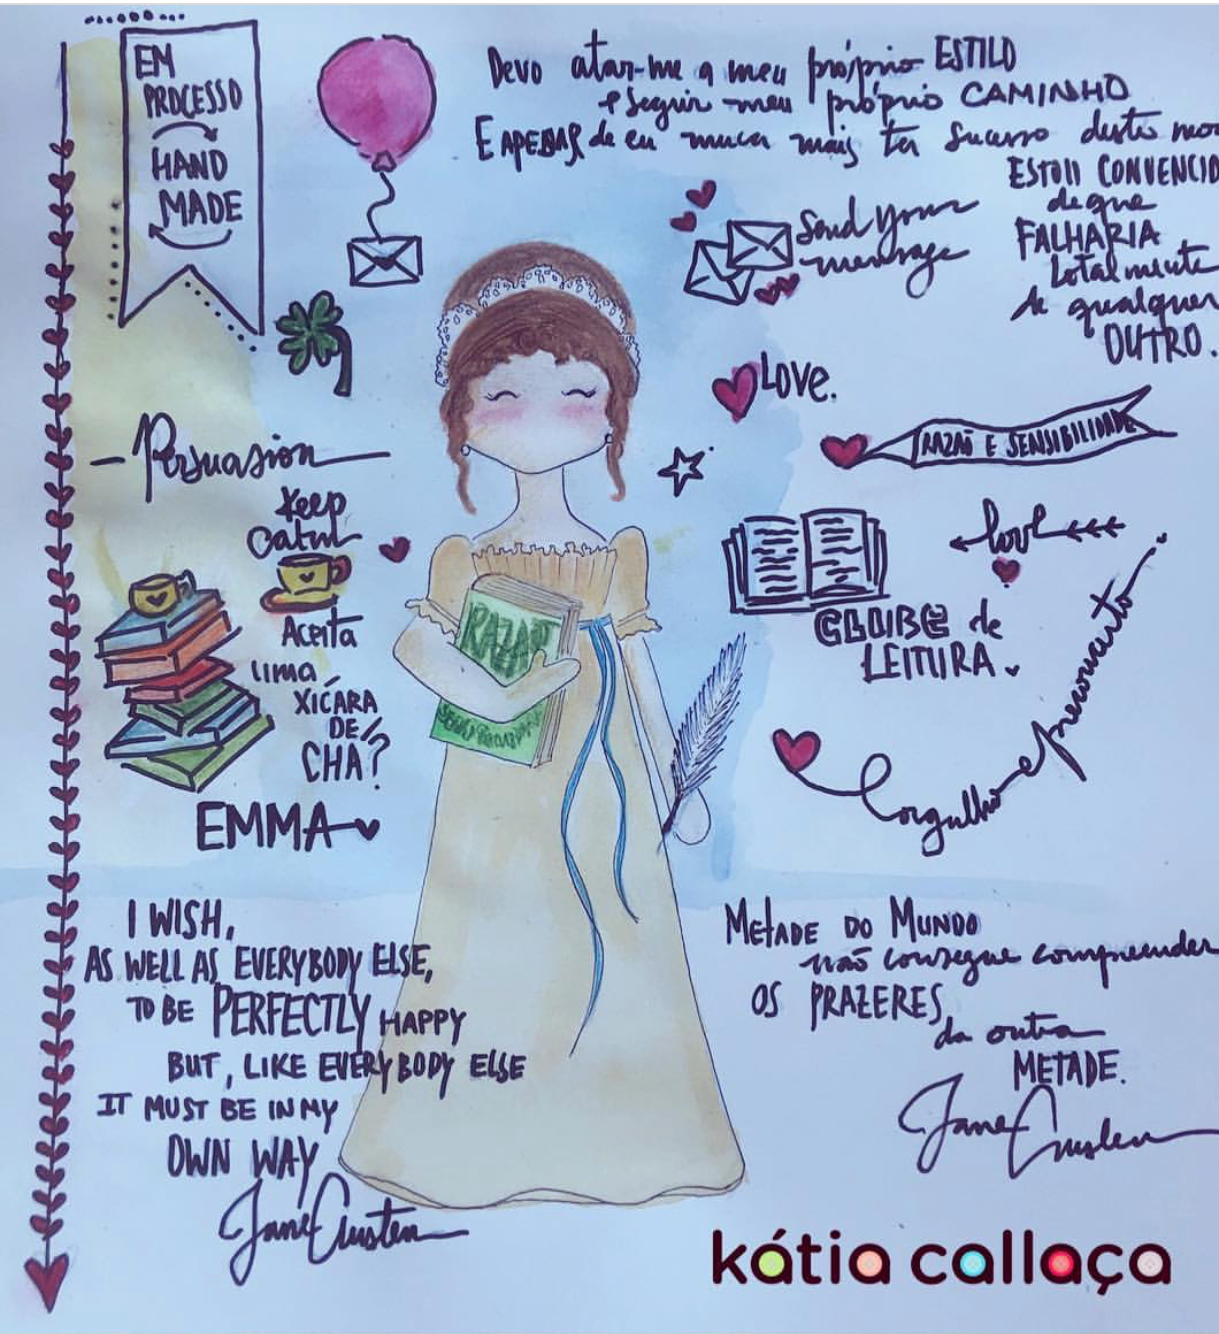 EM
PROCESSO
HAND
MADE
Devo atar-me a meu próprio ESTILO
e seguir meu próprio CAMINHO
E APESAR de eu nunca mais ter sucesso deste mo
ESTOU CONVENCID
de que
FALHARIA
totalmente
de qualquer
OUTRO.
Send your
message
LOVE.
RAZAÕ E SENSIBILIDADE
Persuasion
Keep
Calm
Aceita
Uma
XÍCARA
DE
CHA?
EMMA
RAZAO
love
CLUBE de
LEITURA
orgulho e preconceito
I WISH,
AS WELL AS EVERYBODY ELSE,
TO BE PERFECTLY HAPPY
BUT, LIKE EVERYBODY ELSE
IT MUST BE IN MY
OWN WAY
Jane Austen
METADE DO MUNDO
não consegue compreender
OS PRAZERES
da outra
METADE.
Jane Austen
kátia callaça